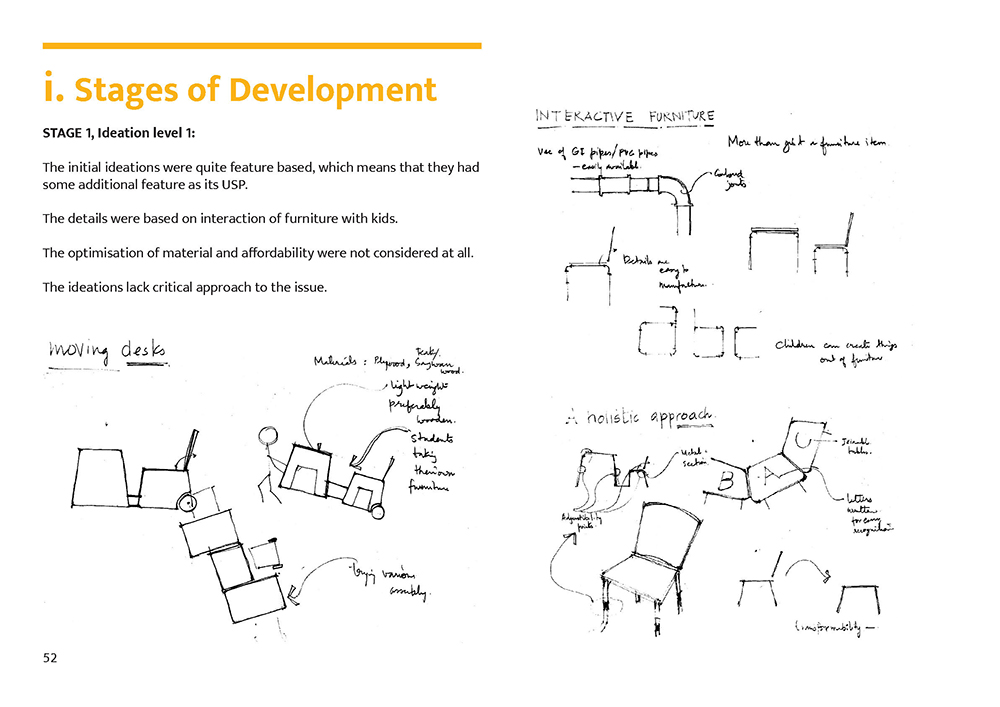 i. Stages of Development
STAGE 1, Ideation level 1:
The initial ideations were quite feature based, which means that they had
some additional feature as its USP.
The details were based on interaction of furniture with kids.
The optimisation of material and affordability were not considered at all.
The ideations lack critical approach to the issue.
moving desks
Materials : Plywood,
Teak/
wood.
light weight
preferably
wooden.
Students
taking
their own
furniture
trying various
assembly.
52
INTERACTIVE FURNITURE
More than just a furniture item.
Use of GI pipes/PVC pipes
– easily available.
joints
Details are
easy to
manufacture.
a b c
Children can create things
out of furniture
A holistic approach.
Metal
section
Adjustability
points
B
A
C
tables.
letters
written
for easy
recognition
transformability –